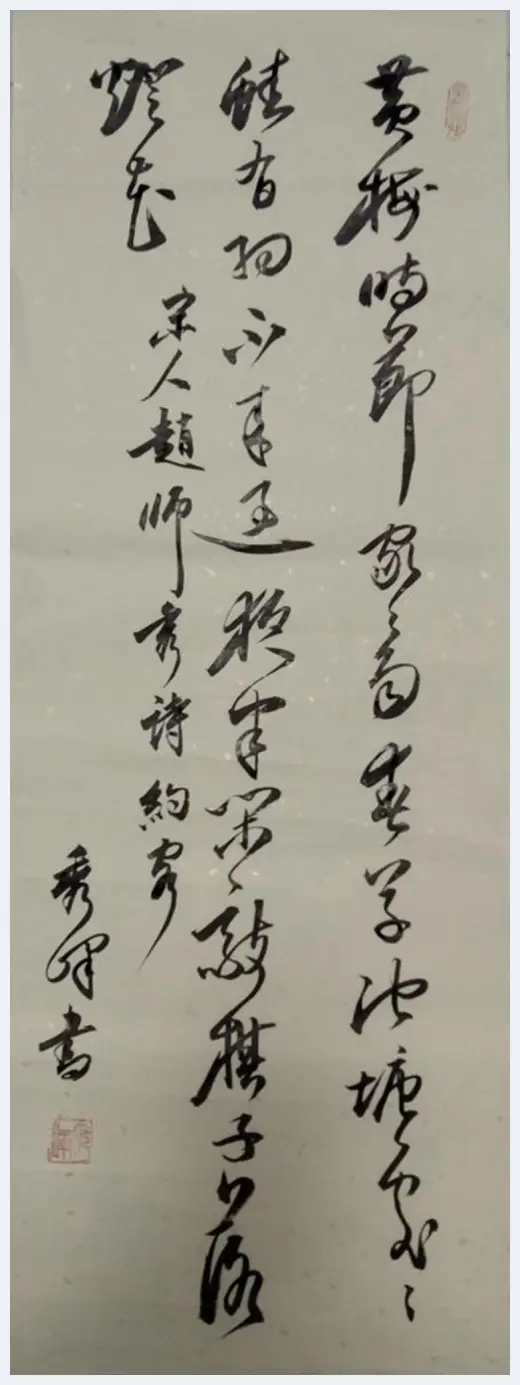 黄梅時節家々雨青草池塘處々
蛙有約不来過夜半閑敲棋子落
燈花
宋人趙師秀詩約客
秀書